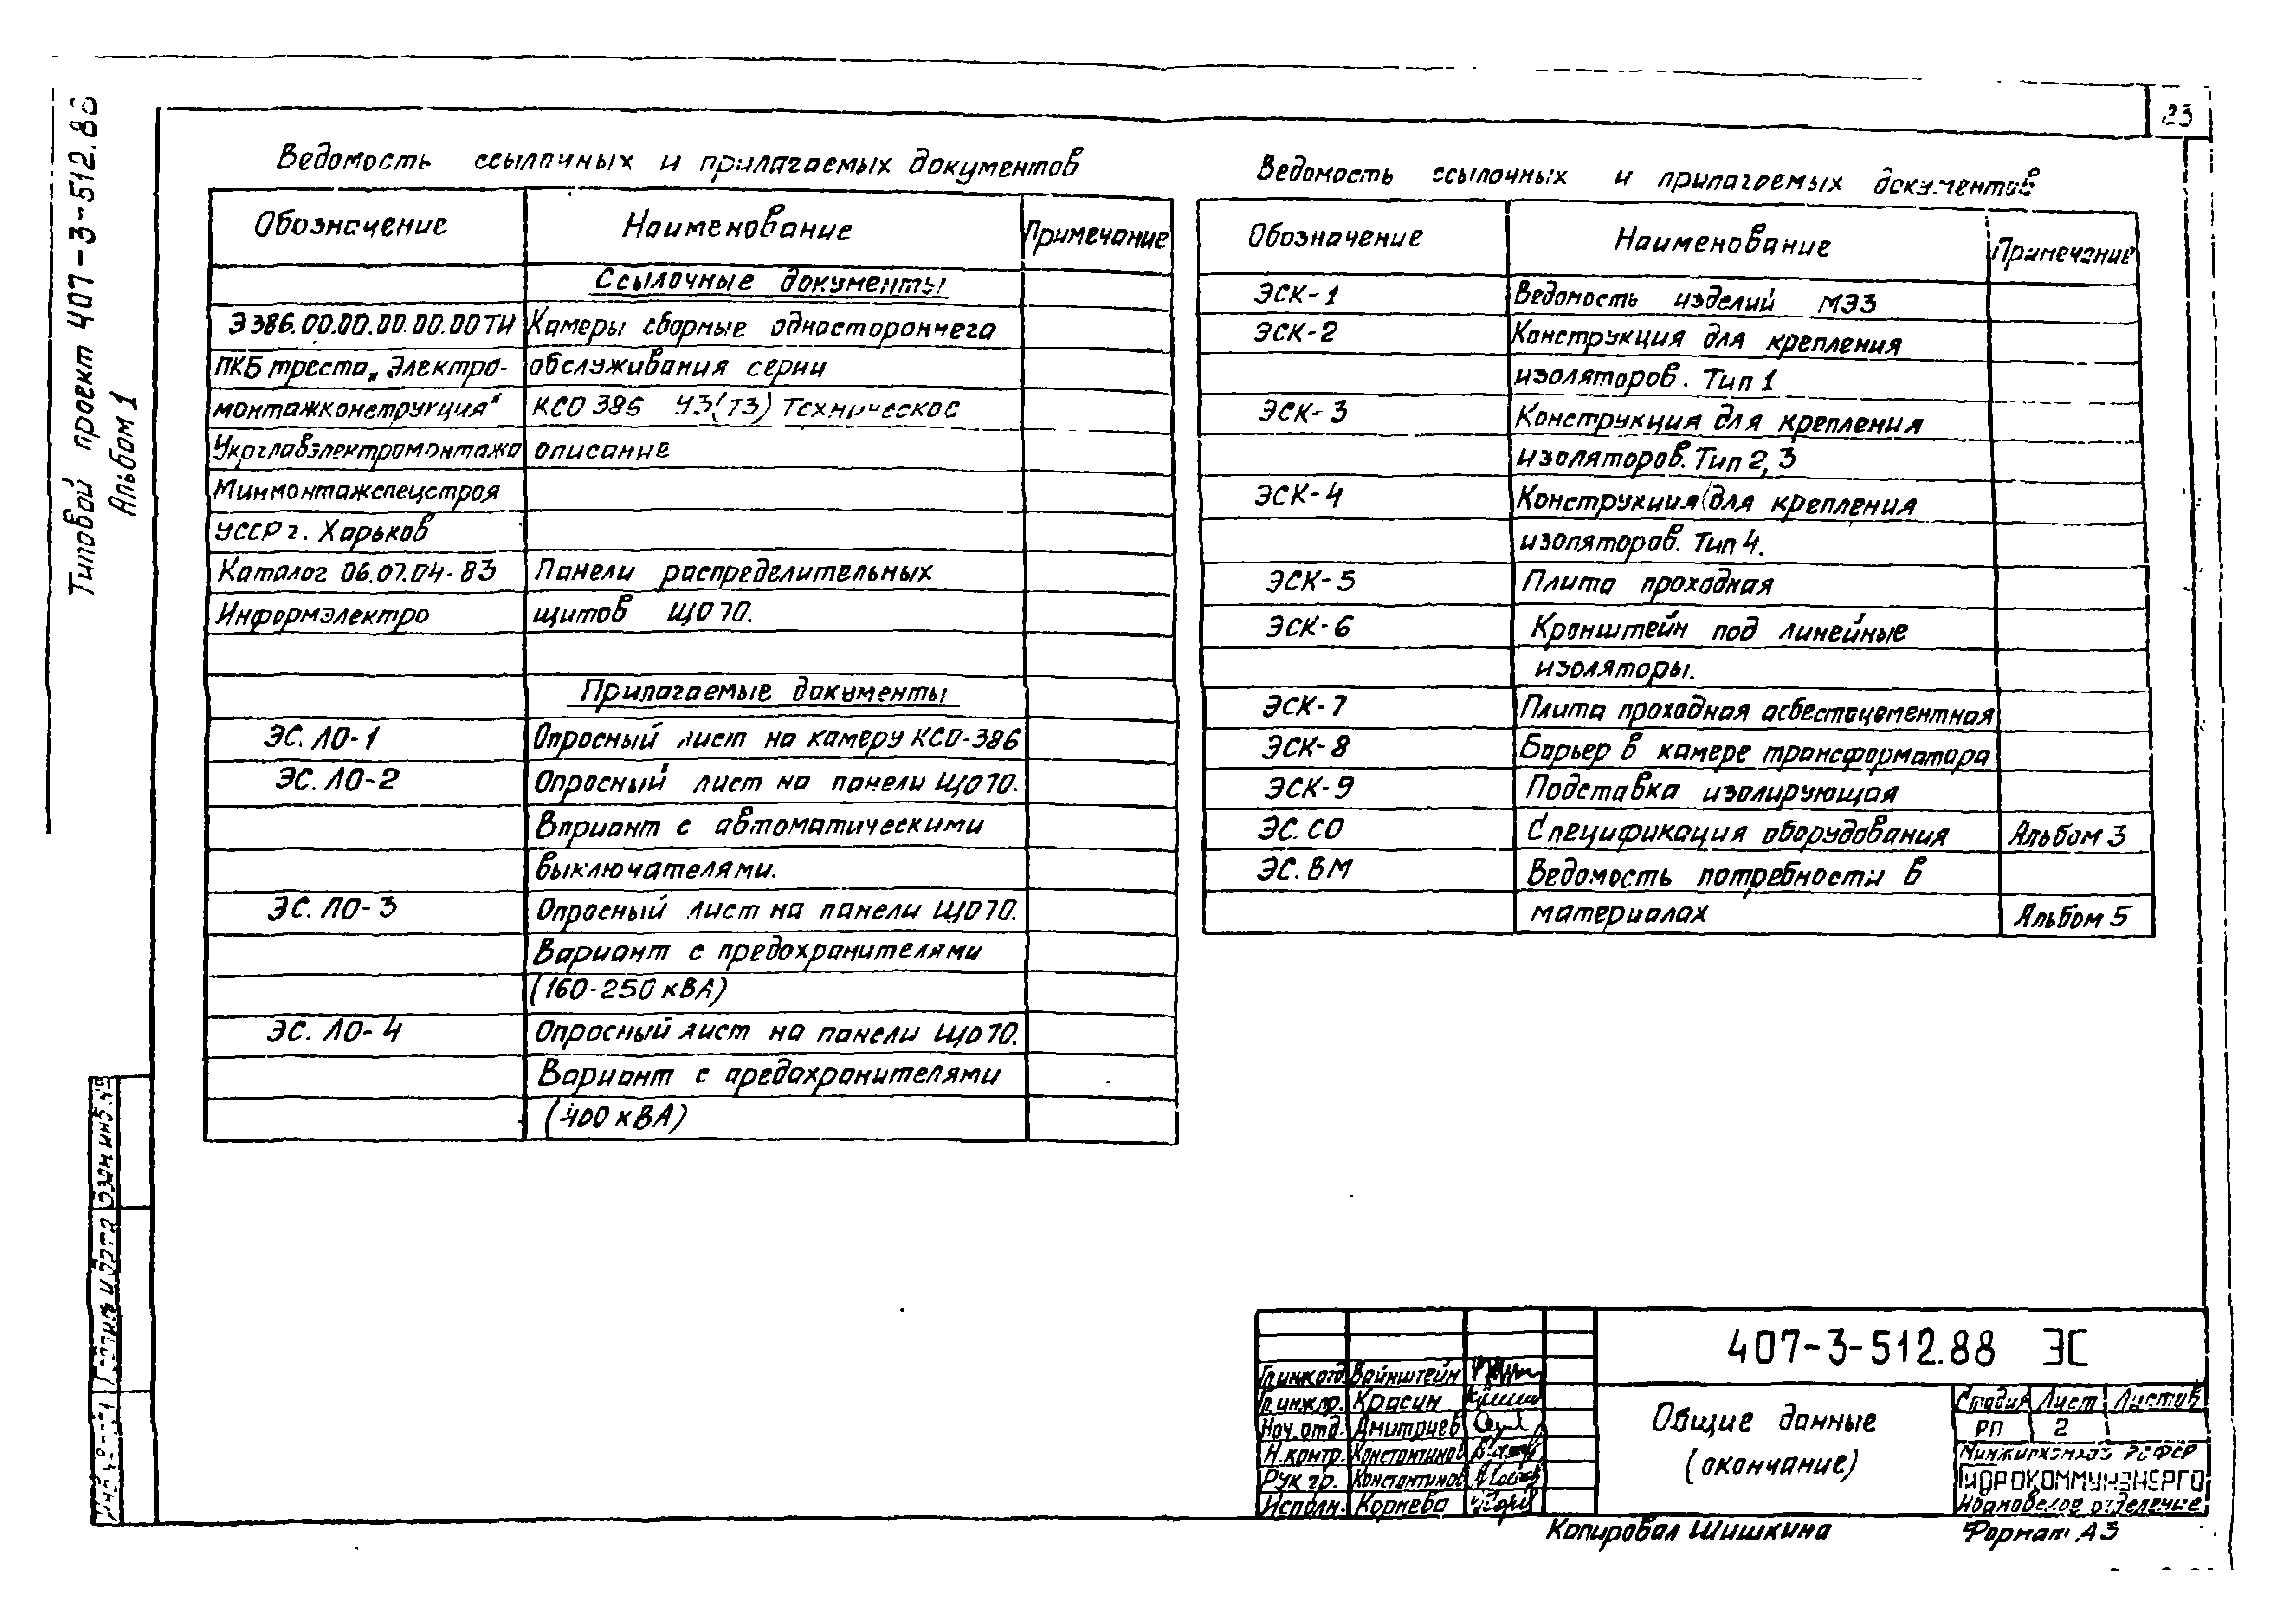 23
Типовой проект 407-3-512.88
Альбом 1
Ведомость ссылочных и прилагаемых документов
Обозначение Наименование Примечание
Ссылочные документы
Э386.00.00.00.00.00ТИ Камеры сборные одностороннего
ПКБ треста „Электро- обслуживания серии
монтажконструкция" КСО 386 У3(Т3) Техническое
Укрглавэлектромонтажа описание
Минмонтажспецстроя
УССР г. Харьков
Каталог 06.07.04-83 Панели распределительных
Информэлектро щитов ЩО70.
Прилагаемые документы
ЭС.ЛО-1 Опросный лист на камеру КСО-386
ЭС.ЛО-2 Опросный лист на панели ЩО70.
Вариант с автоматическими
выключателями.
ЭС.ЛО-3 Опросный лист на панели ЩО70.
Вариант с предохранителями
(160-250 кВА)
ЭС.ЛО-4 Опросный лист на панели ЩО70.
Вариант с предохранителями
(400 кВА)
Ведомость ссылочных и прилагаемых документов
Обозначение Наименование Примечание
ЭСК-1 Ведомость изделий МЭЗ
ЭСК-2 Конструкция для крепления
изоляторов. Тип 1
ЭСК-3 Конструкция для крепления
изоляторов. Тип 2, 3
ЭСК-4 Конструкция для крепления
изоляторов. Тип 4.
ЭСК-5 Плита проходная
ЭСК-6 Кронштейн под линейные
изоляторы.
ЭСК-7 Плита проходная асбестоцементная
ЭСК-8 Барьер в камере трансформатора
ЭСК-9 Подставка изолирующая
ЭС.СО Спецификация оборудования Альбом 3
ЭС.ВМ Ведомость потребности в
материалах Альбом 5
407-3-512.88 ЭС
Гл.инж.отд. Вайнштейн
Гл.инж.пр. Красин
Нач.отд. Дмитриев
Н.контр. Константинов
Рук.гр. Константинов
Исполн. Корнева
Общие данные
(окончание)
Стадия Лист Листов
РП 2
Минжилкомхоз РСФСР
ГИПРОКОММУНЭНЕРГО
Ивановское отделение
Копировал Шишкина Формат А3
Взам инв.№
Подпись и дата
Инв.№